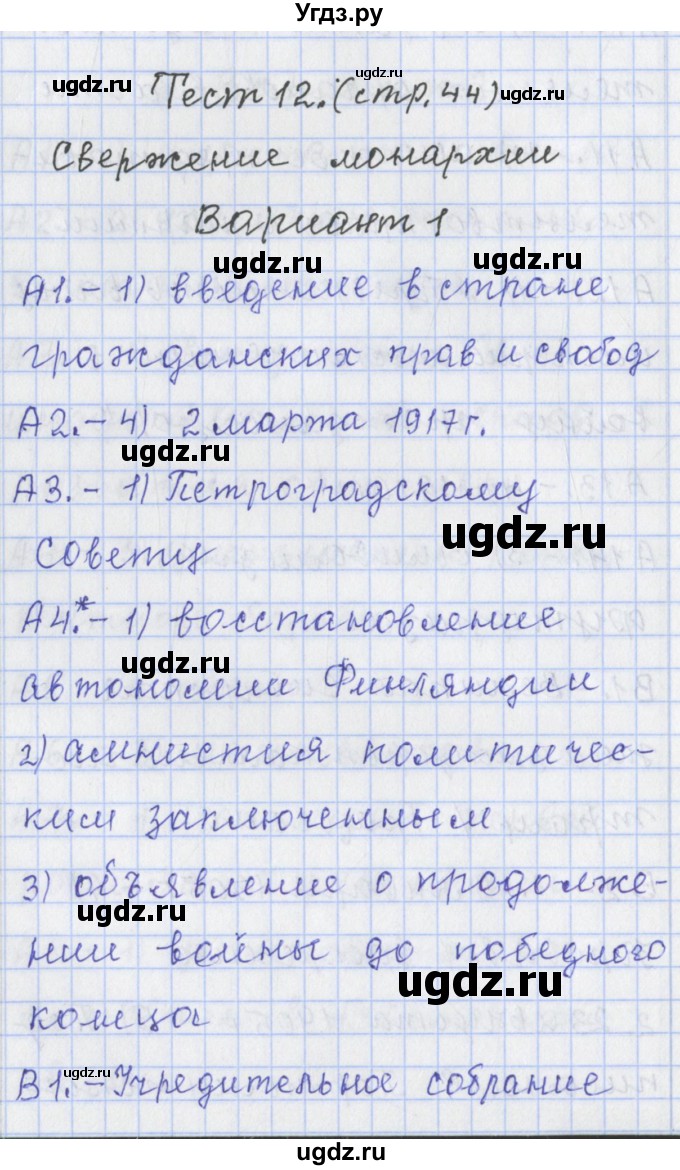 Угдз.ру
ugdz.ru ugdz.ru
Тест 12. (стр. 44) ugdz.ru
Свержение монархии
Вариант 1
ugdz.ru
А1. - 1) введение в стране
ugdz.ru
гражданских прав и свобод
А2. - 4) 2 марта 1917 г.
ugdz.ru
А3. - 1) Петроградскому
ugdz.ru
Совету
А4.* - 1) восстановление
ugdz.ru
автономии Финляндии
2) амнистия политичес-
ким заключенным
3) объявление о продолже-
ugdz.ru
нии войны до победного
ugdz.ru
конца
В1. - Учредительное собрание
ugdz.ru
www.ugdz.ru